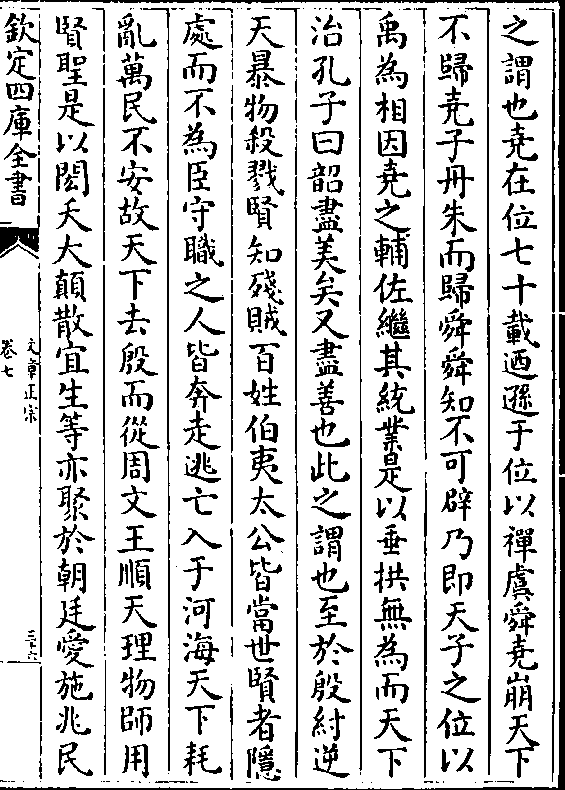 之謂也堯在位七十載迺遜于位以禪虞舜堯崩天下
不歸堯子丹朱而歸舜舜知不可辟乃即天子之位以
禹為相因堯之輔佐繼其統業是以垂拱無為而天下
治孔子曰韶盡美矣又盡善也此之謂也至於殷紂逆
天暴物殺戮賢知殘賊百姓伯夷太公皆當世賢者隱
處而不為臣守職之人皆奔走逃亡入于河海天下耗
亂萬民不安故天下去殷而從周文王順天理物師用
賢聖是以閎夭大顛散宜生等亦聚於朝廷愛施兆民
欽定四庫全書
文章正宗
卷七
三十六